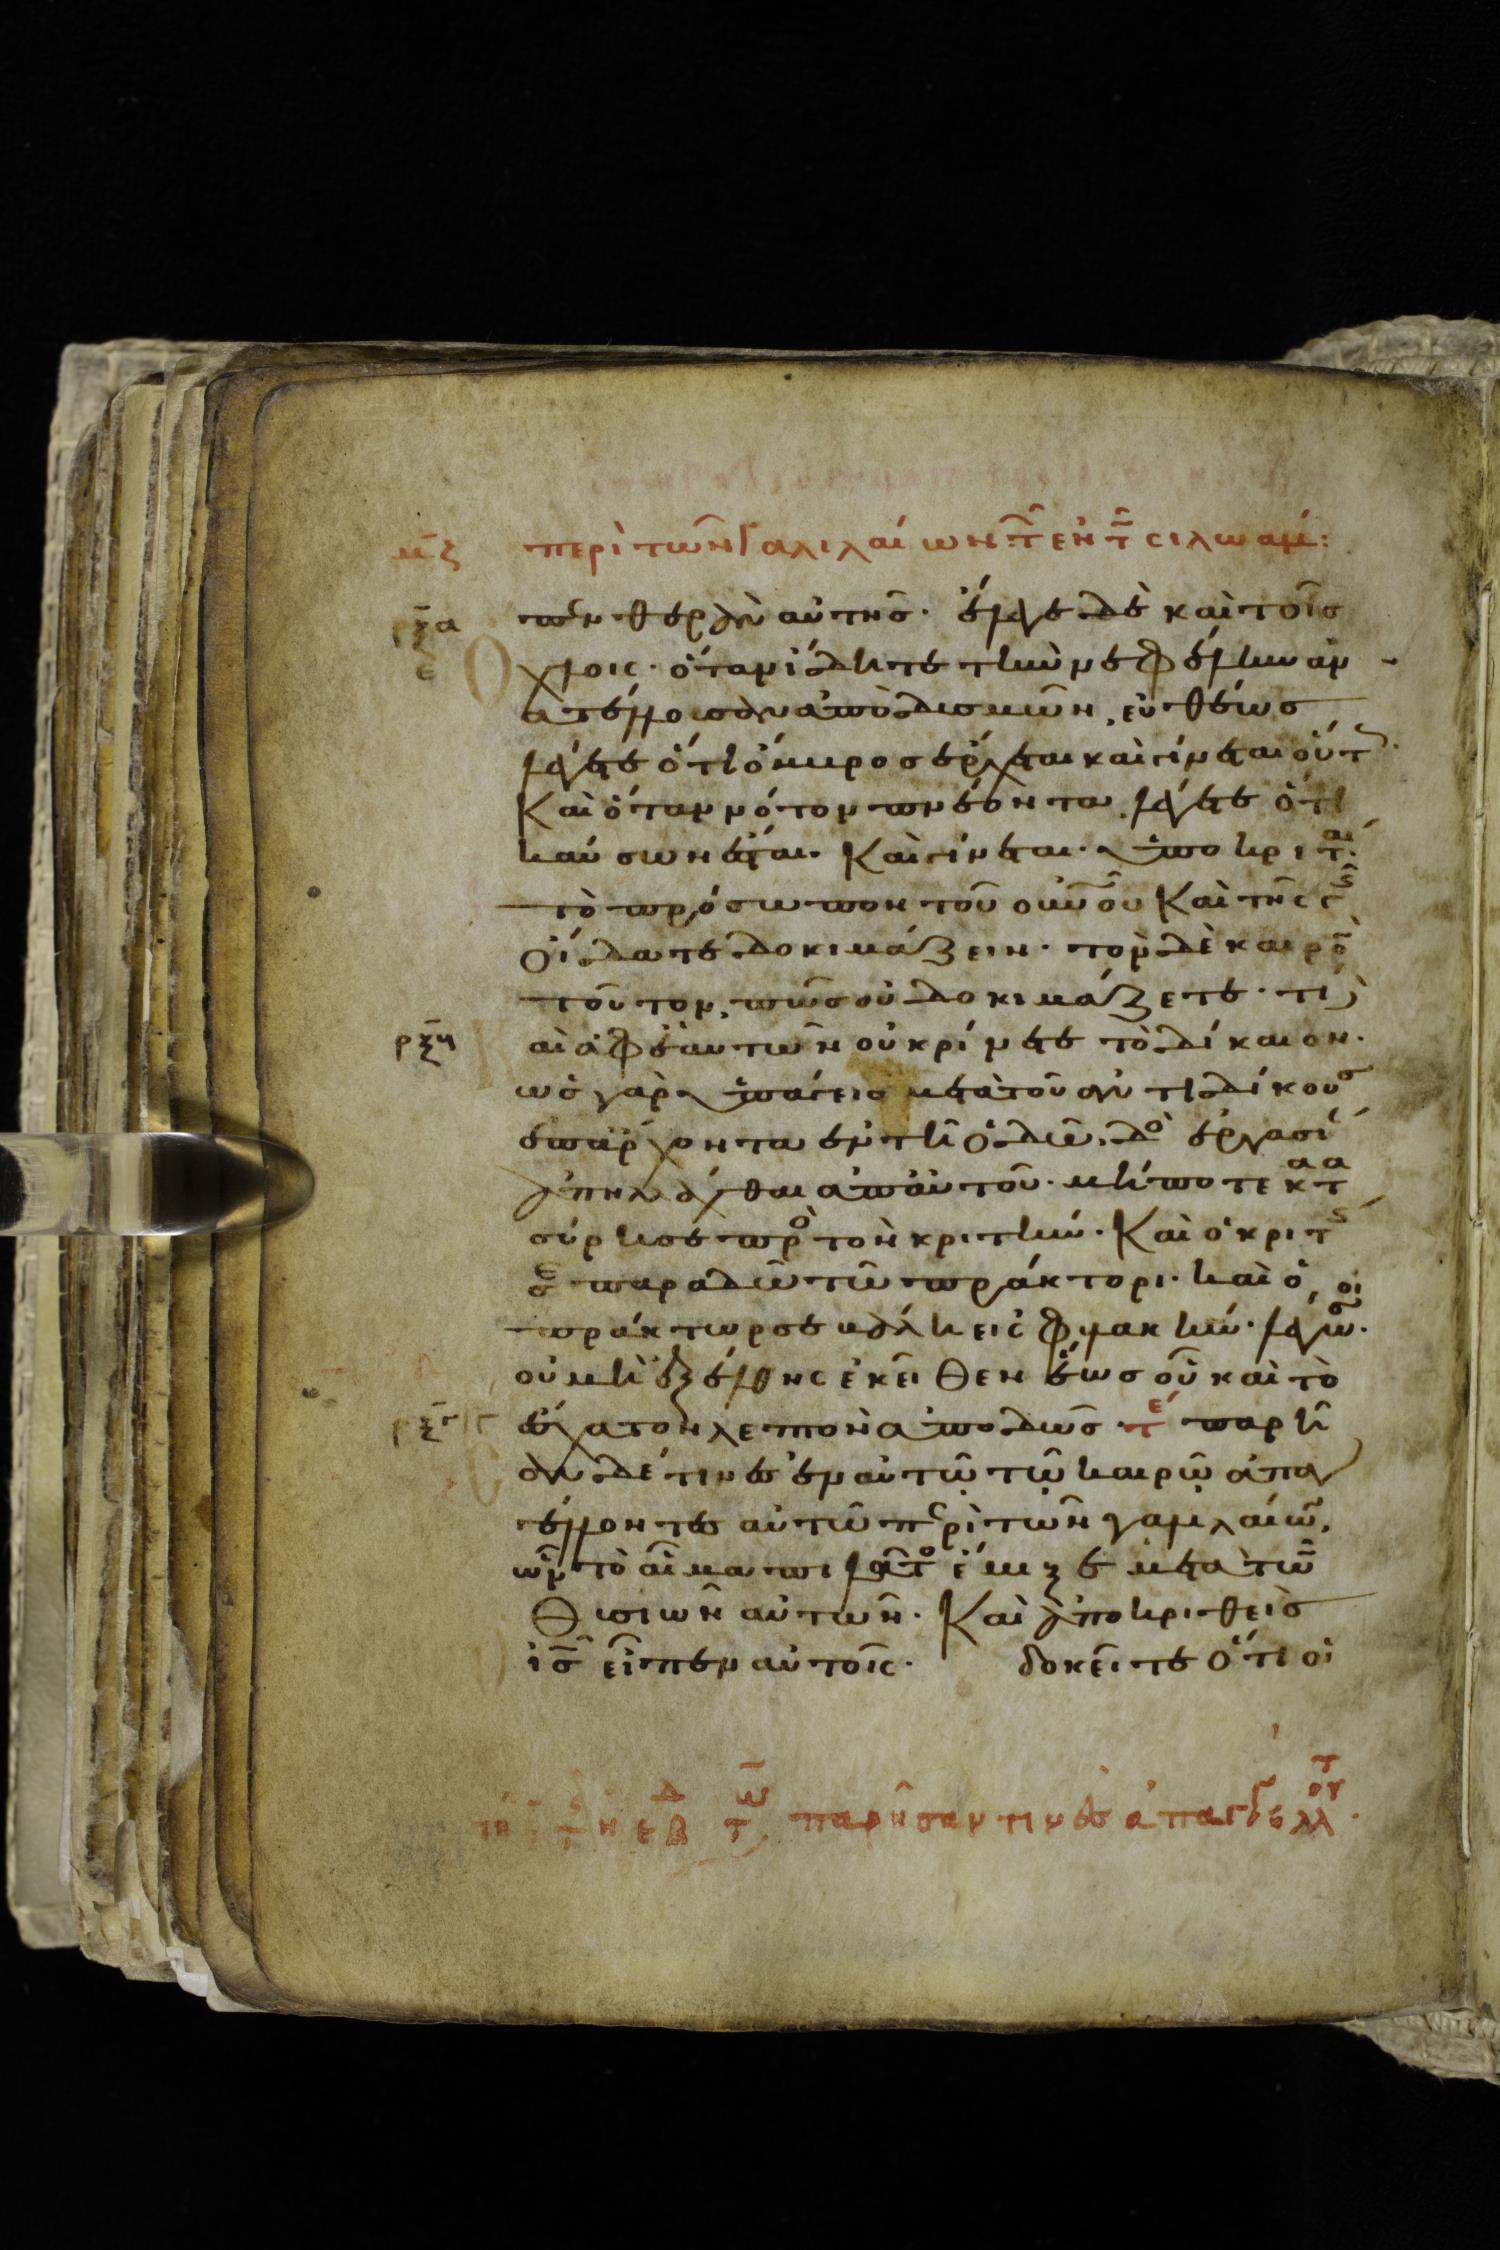 μζ περὶ τῶν Γαλιλαίων κ(αὶ) τ(ῶν) ἐν τ(ῷ) σιλωάμ:
ρξα πενθερὰν αὐτῆς. ἔλεγε δὲ καὶ τοῖς
ε ὄχλοις. ὅταν ἴδητε τὴν νεφέλην ἀν
ατέλλουσαν ἀπὸ δυσμῶν, εὐθέως
λέγετε ὅτι ὄμβρος ἔρχεται καὶ γίνεται οὕτ
Καὶ ὅταν νότον πνέοντα, λέγετε ὅτι
καύσων ἔσται. Καὶ γίνεται. ὑποκριταί.
τὸ πρόσωπον τοῦ οὐνοῦ Καὶ τῆς γῆς
οἴδατε δοκιμάζειν. τὸν δὲ καιρὸ
τοῦτον, πῶς οὐ δοκιμάζετε. τί
ρξ καὶ ἀφ ἑαυτῶν οὐ κρίνετε τὸ δίκαιον.
ὡς γὰρ ὑπάγεις μετὰ τοῦ ἀντιδίκου σου
ἐπ ἄρχοντα ἐν τῆ ὁδῶ, δὸ ἐργασί
ἀπηλλάχθαι ἀπ αὐτοῦ. μήποτε κατα
σύρη σε πρὸ τὸν κριτήν. Καὶ ὁ κριτ
σε παραδῶ τῶ πράκτορι. καὶ ὁ
πράκτωρ σε βάλη εἰς φυλακήν. λέγω σοι.
οὐ μὴ ἐξέλθης ἐκεῖθεν ἕως οὗ καὶ τὸ
ρξ ἔσχατον λεπτὸν ἀποδῶς τέ παρῆ
σαν δέ τινες ἐν αὐτῷ τῷ καιρῷ ἀπαγ
γέλλοντες αὐτῶ περὶ τῶν γαλιλαίω,
ὧν τὸ αἷμα πιλᾶτο ἔμιξε μετὰ τῶν
θυσιῶν αὐτῶν. Καὶ ἀποκριθεὶς
ἰς εἶπεν αὐτοῖς. δοκεῖτε ὅτι οἱ
παρῆσαν τινὲς ἀπαγγέλλ